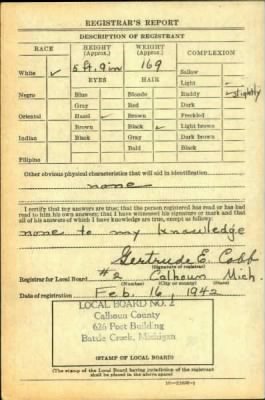 REGISTRAR'S REPORT
DESCRIPTION OF REGISTRANT
RACE HEIGHT (Approx.) WEIGHT (Approx.) COMPLEXION
White ✓ 5 ft. 9 in 169 Sallow
EYES HAIR Light
Negro Blue Blonde Ruddy ✓ slightly
Gray Red Dark
Oriental Hazel ✓ Brown Freckled
Brown Black ✓ Light brown
Indian Black Gray Dark brown
Bald Black
Filipino
Other obvious physical characteristics that will aid in identification
none
I certify that my answers are true; that the person registered has read or has had
read to him his own answers; that I have witnessed his signature or mark and that
all of his answers of which I have knowledge are true, except as follows:
none to my knowledge
Gertrude E. Cobb
(Signature of registrar)
Registrar for Local Board #2 Calhoun Mich.
(Number) (City or county) (State)
Date of registration Feb. 16, 1942
LOCAL BOARD NO. 2
Calhoun County
626 Post Building
Battle Creek, Michigan
(STAMP OF LOCAL BOARD)
(The stamp of the Local Board having jurisdiction of the registrant
shall be placed in the above space)